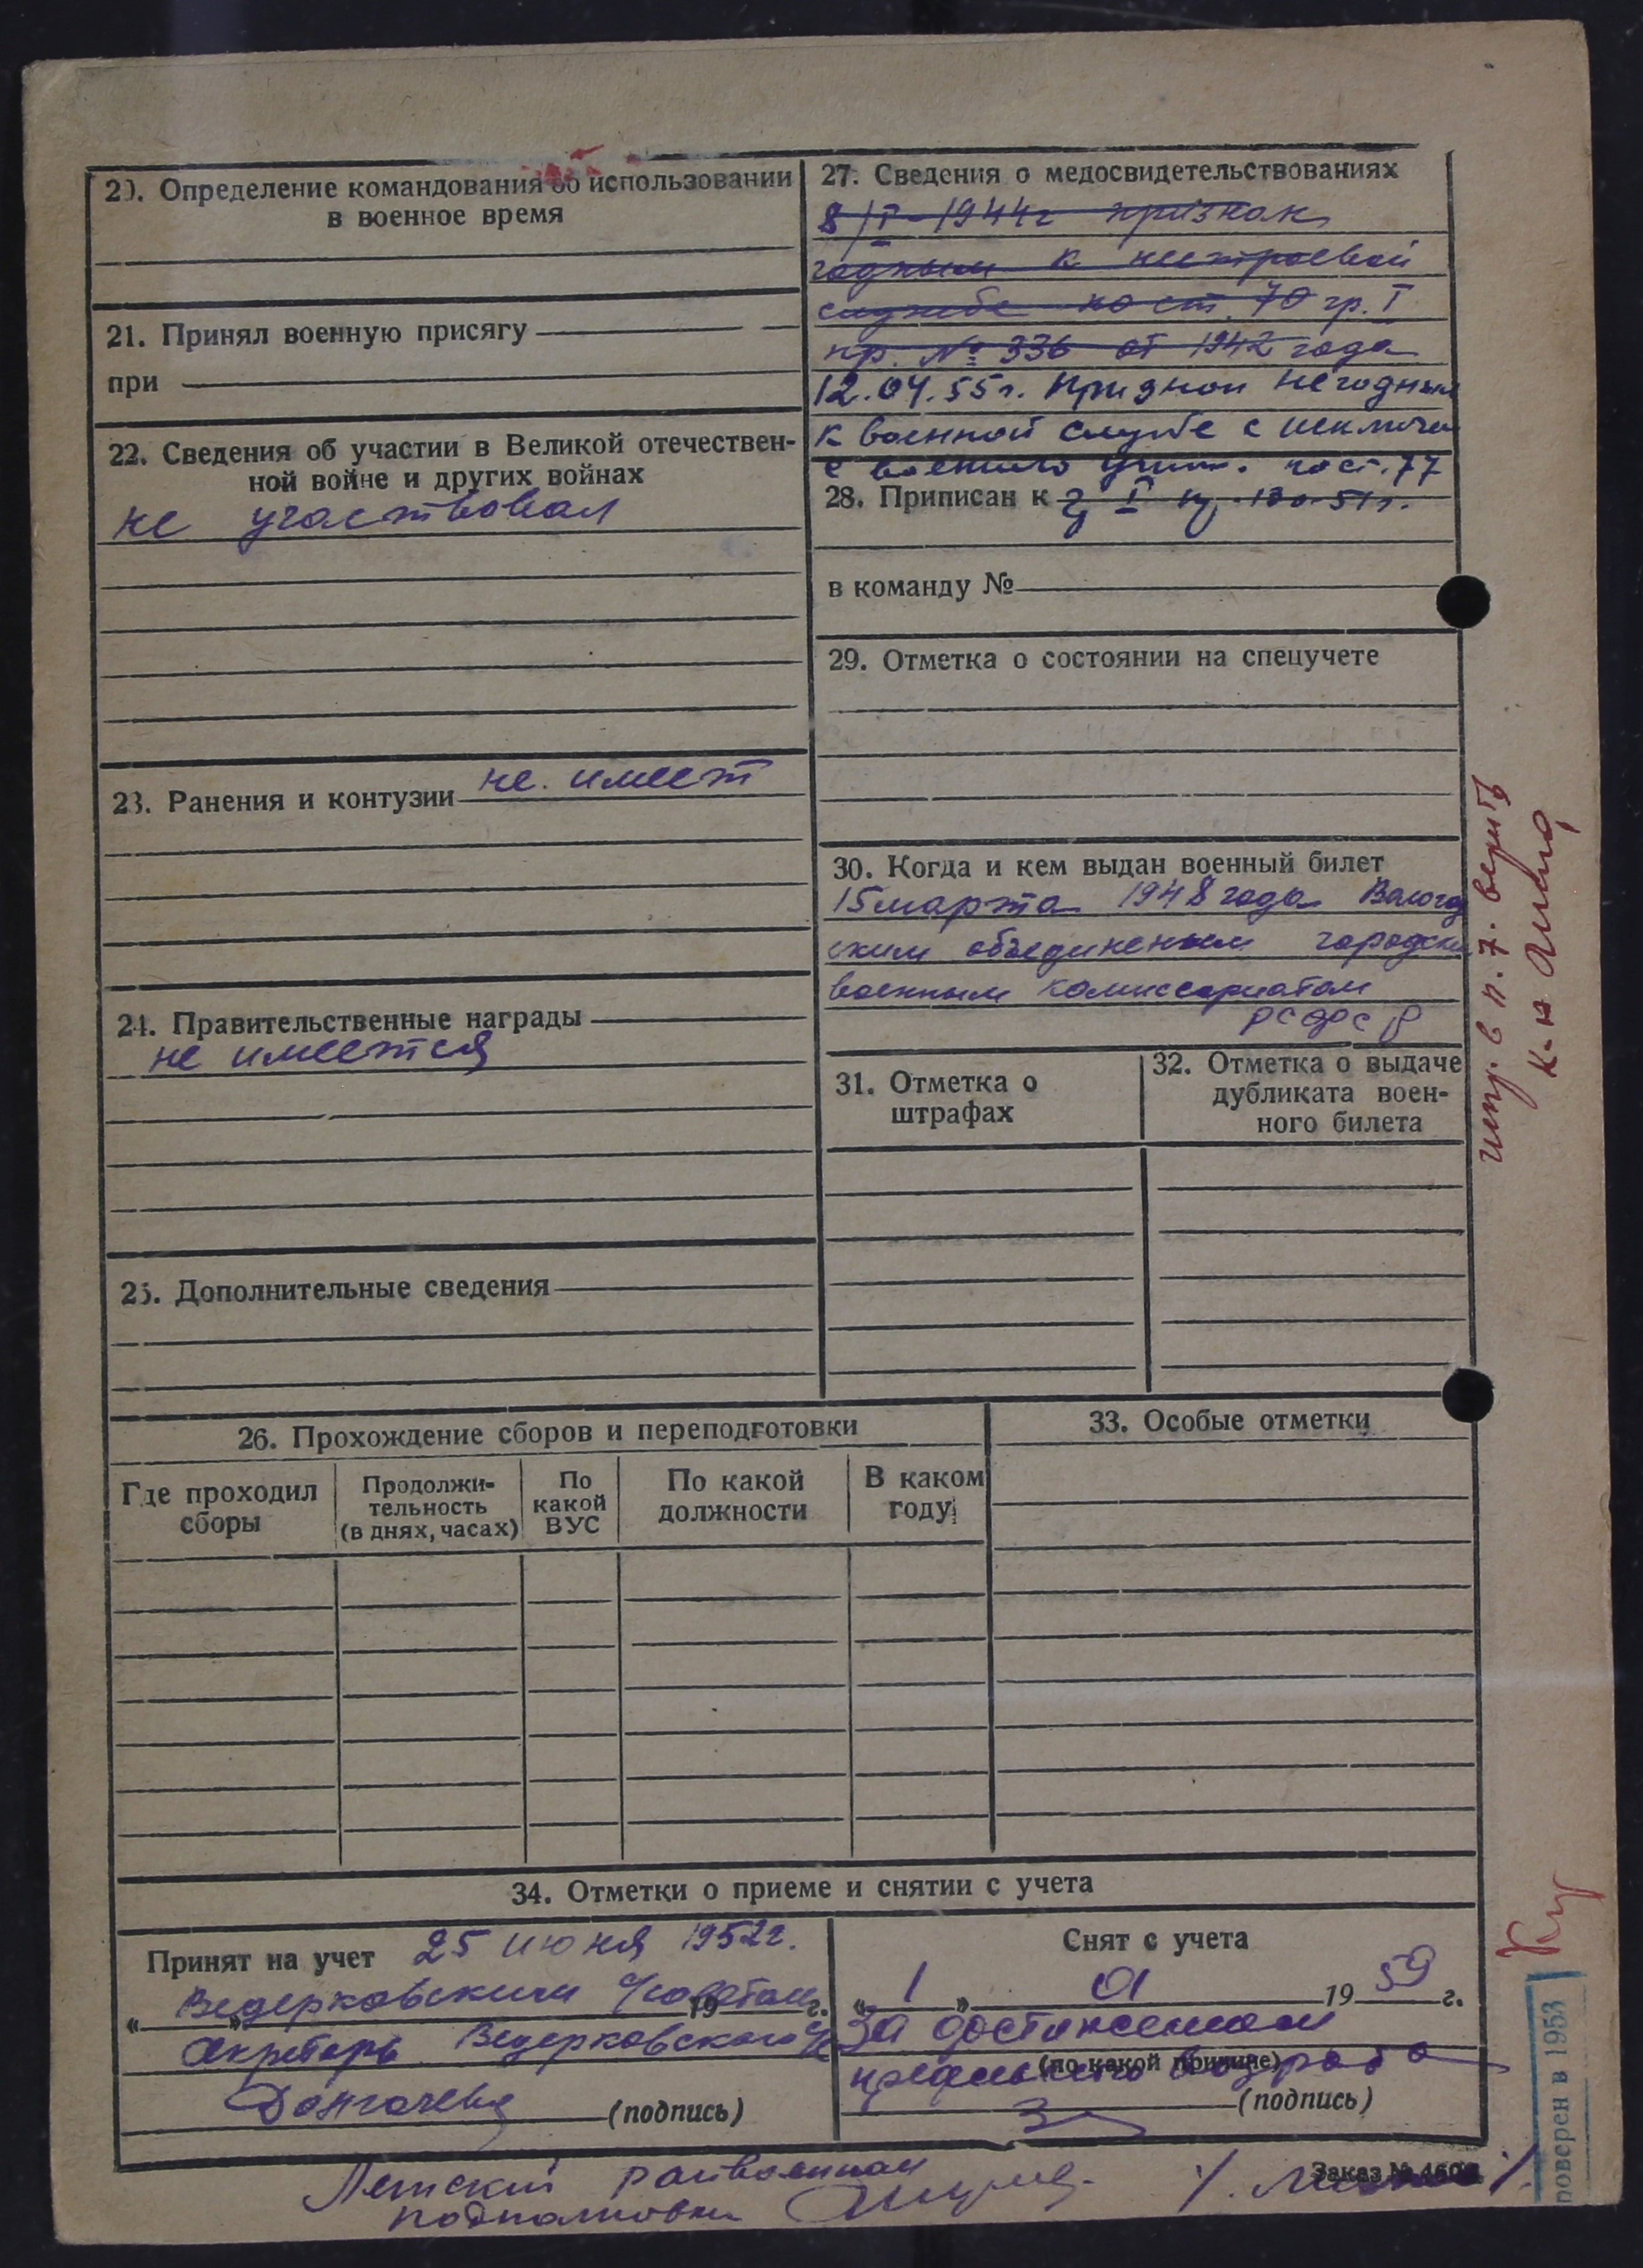 20. Определение командования об использовании
в военное время
21. Принял военную присягу
при
22. Сведения об участии в Великой отечествен-
ной войне и других войнах
не участвовал
23. Ранения и контузии не имеет
24. Правительственные награды
не имеется
25. Дополнительные сведения
27. Сведения о медосвидетельствованиях
8/I-1944г признан
годным к нестроевой
службе по ст. 70 гр. I
пр. № 336 от 1942 года
12.04.55г. Признан негодным
к военной службе с исключен
с военного учет. по ст. 77
28. Приписан к
в команду №
29. Отметка о состоянии на спецучете
30. Когда и кем выдан военный билет
15 марта 1948 года Вологод
ским объединеным городским
военным комиссариатом
РСФСР
31. Отметка о
штрафах
32. Отметка о выдаче
дубликата воен-
ного билета
26. Прохождение сборов и переподготовки
Где проходил
сборы
Продолжи-
тельность
(в днях, часах)
По
какой
ВУС
По какой
должности
В каком
году
33. Особые отметки
34. Отметки о приеме и снятии с учета
Принят на учет 25 июня 1952г.
« » Ведерковским с/советом 19 г.
Секретарь Ведерковского с/с
(подпись)
Снят с учета
« 1 » 01 1959 г.
За достижением
(по какой причине)
предельного возраста
(подпись)
Летский райвоенком
подполковник
Заказ №
испр. в п. 7. верить
к-н
поверен в 1953